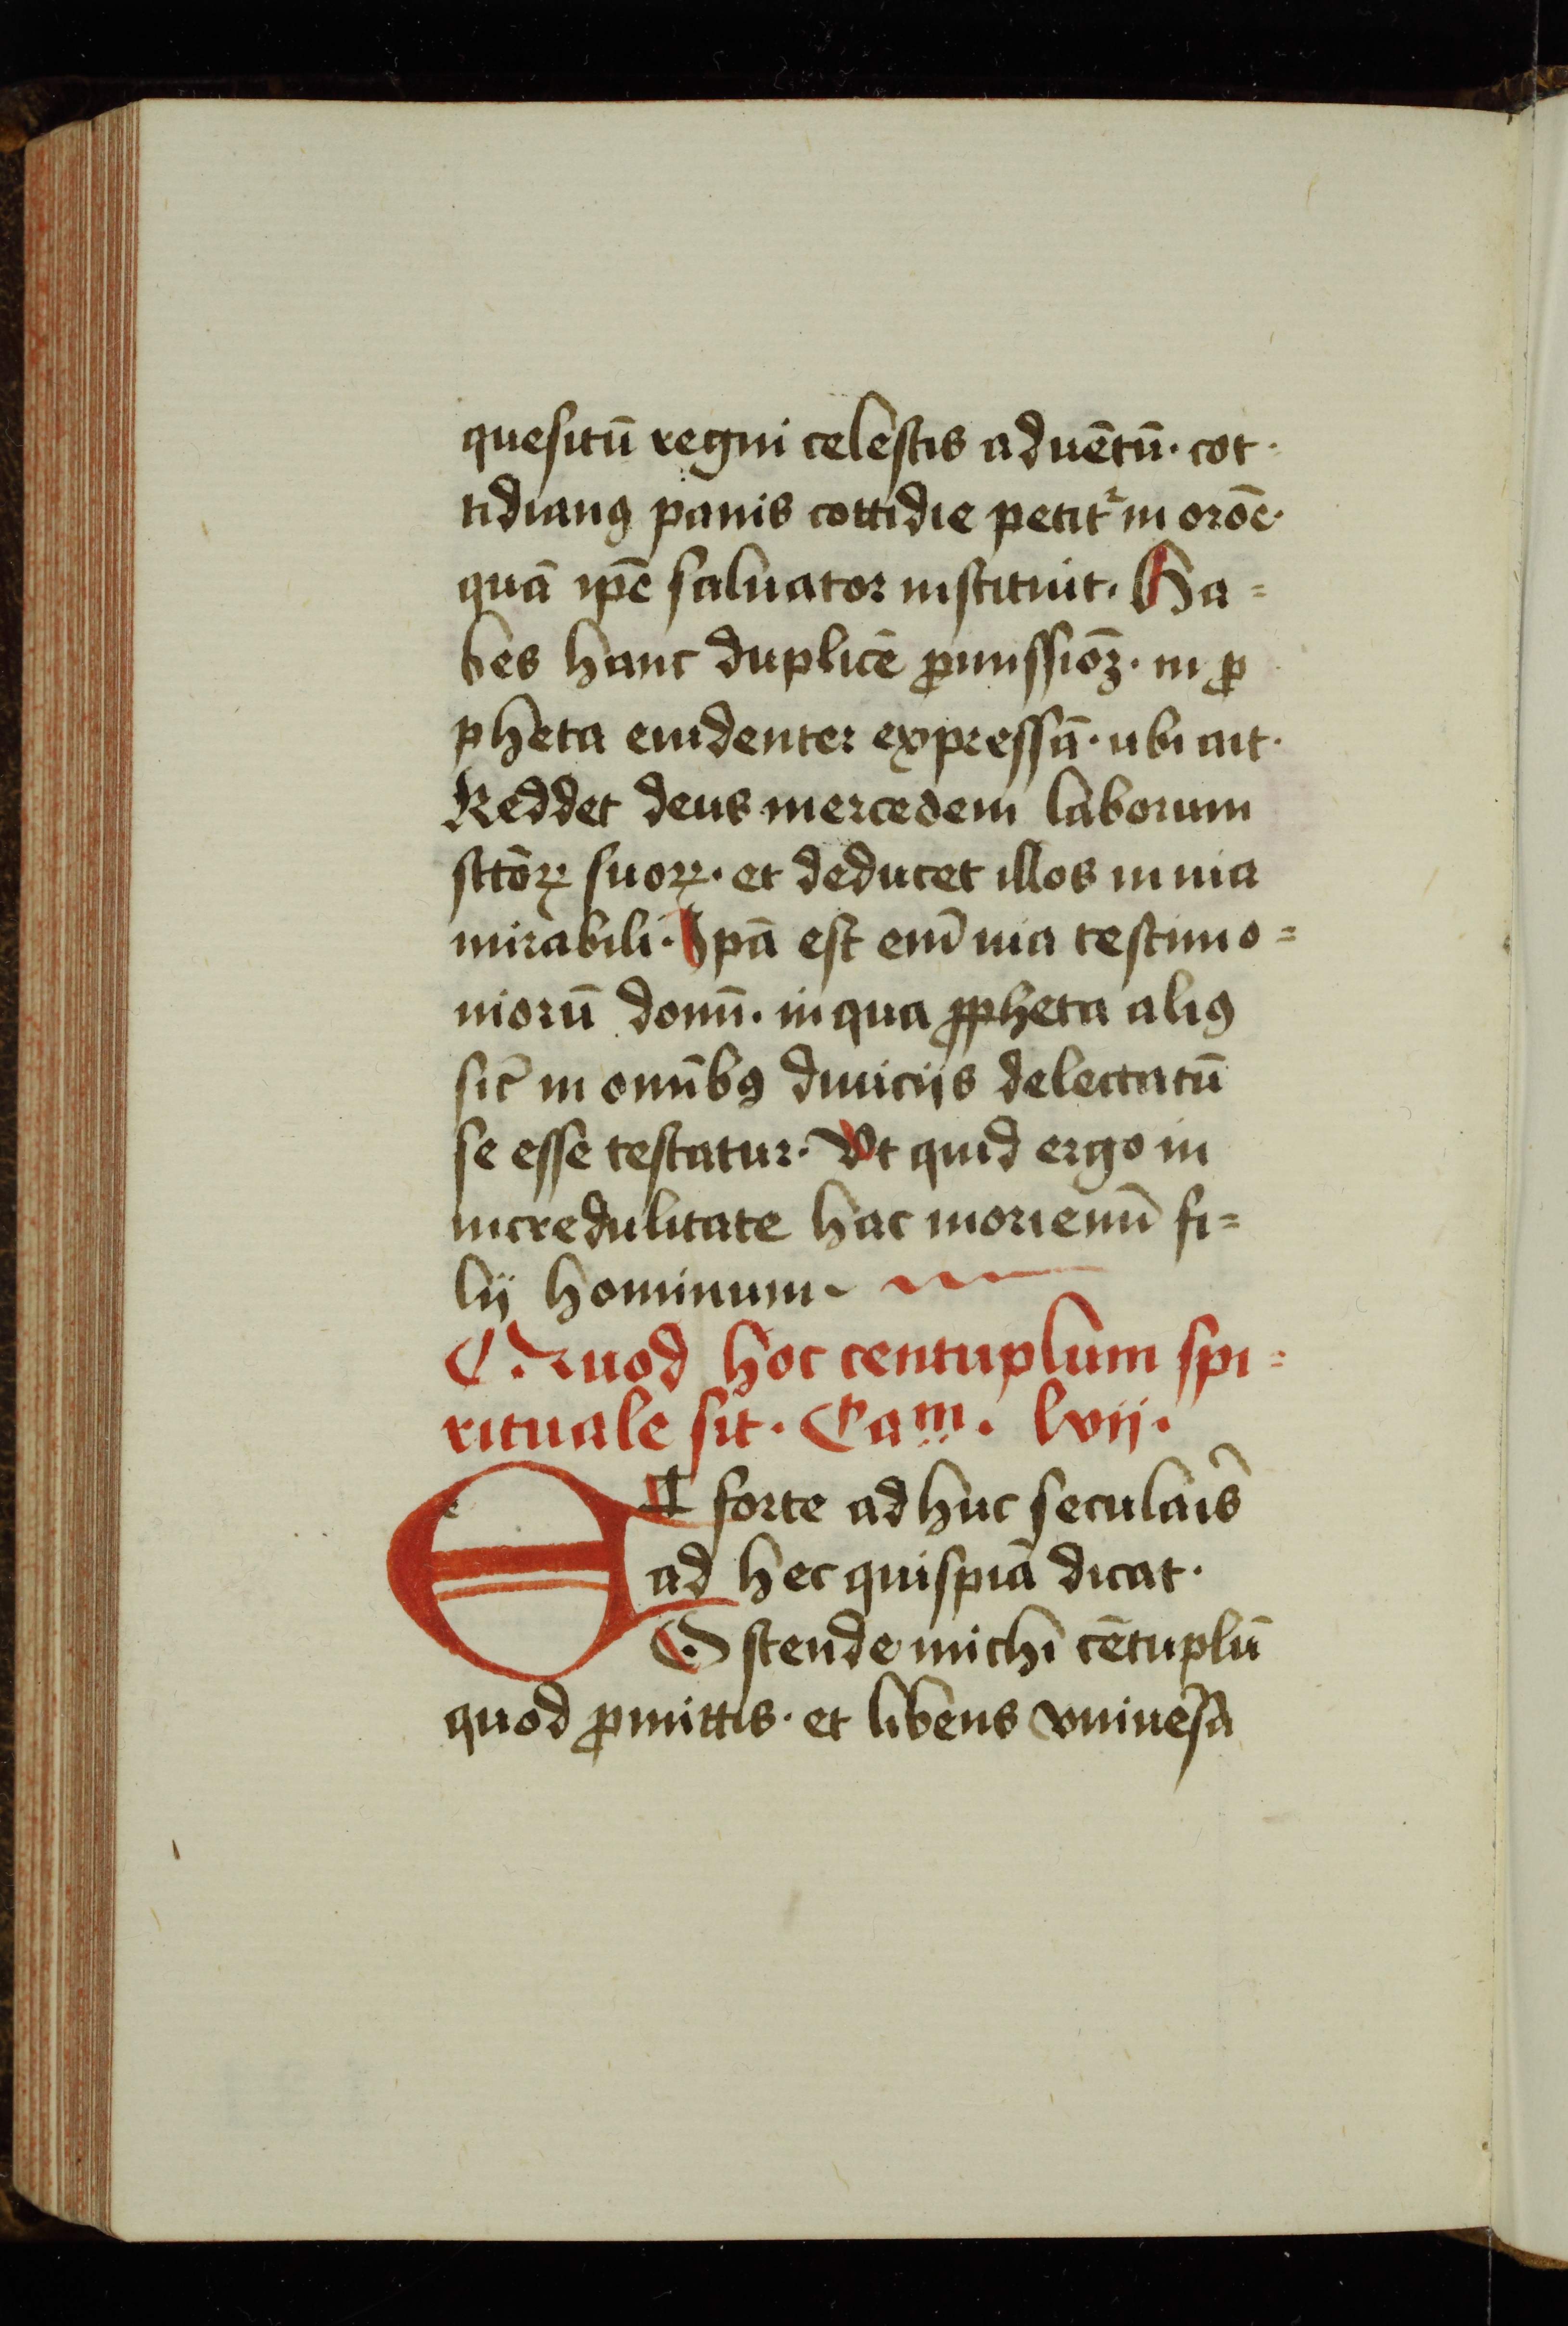 quesitū regni celestis aduētū· cot·
tidianꝯ panis cottidie petitᷣ in orōe·
quā ip̄e saluator instituit. Ha=
bes hanc duplicē ꝓmissiōꝫ· in ꝓ
pheta euidenter expressā· ubi ait·
Reddet deus mercedem laborum
sctōꝝ suoꝝ· et deducet illos in uia
mirabili· Ipā est eni̅ uia testimo=
niorū domi̅· in qua ꝓpheta aliꝯ
sic̄ in omībꝯ diuicijs delectatū
se esse testatur· Vt quid ergo in
incredulitate hac moriemi̅ fi=
lij hominum·
Quod hoc centuplum spi=
rituale sit· Cam· lvij·
ET forte adhuc secularis
ad hec quispiā dicat·
Ostende michi cētuplū
quod ꝓmittis· et libens vniuersa